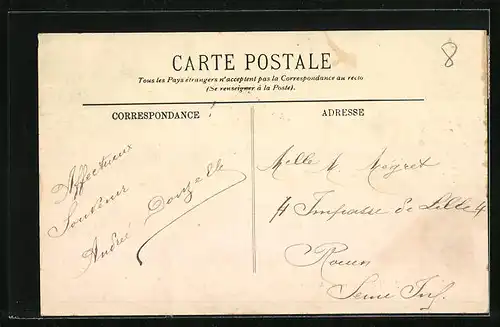 8
CARTE POSTALE
Tous les Pays étrangers n'acceptent pas la Correspondance au recto
(Se renseigner à la Poste).
CORRESPONDANCE
ADRESSE
Affectueux
Souvenir
André
Melle M. Mégret
4 Impasse de Lille 4
Rouen
Seine Inf.